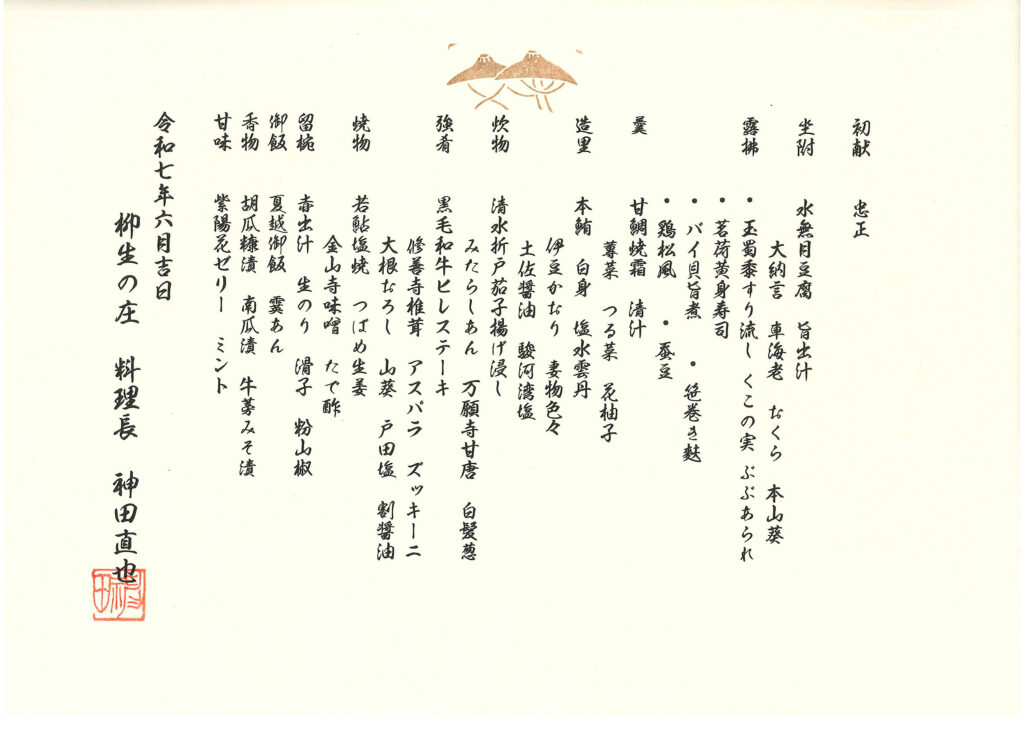 初献　忠正
坐附　水無月豆腐　旨出汁
大納言　車海老　おくら　本山葵
露払　・玉蜀黍すり流し　くこの実　ぶぶあられ
・茗荷黄身寿司
・バイ貝旨煮　・笹巻き麩
・鶏松風　・蚕豆
羹　甘鯛焼霜　清汁
蓴菜　つる菜　花柚子
造里　本鮪　白身　塩水雲丹
伊豆かおり　妻物色々
土佐醤油　駿河湾塩
炊物　清水折戸茄子揚げ浸し
みたらしあん　万願寺甘唐　白髪葱
強肴　黒毛和牛ヒレステーキ
修善寺椎茸　アスパラ　ズッキーニ
大根おろし　山葵　戸田塩　割醤油
焼物　若鮎塩焼　つばめ生姜
金山寺味噌　たで酢
留椀　赤出汁　生のり　滑子　粉山椒
御飯　夏越御飯　霙あん
香物　胡瓜糠漬　南瓜漬　牛蒡みそ漬
甘味　紫陽花ゼリー　ミント
令和七年六月吉日
柳生の庄　料理長　神田直也